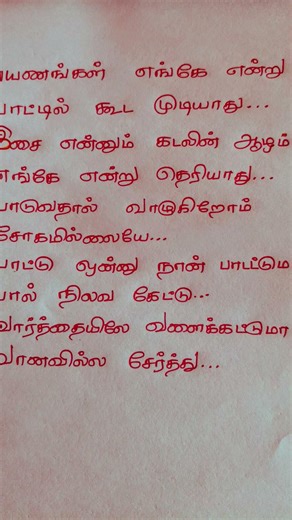 பயணங்கள் எங்கே என்று
பாட்டில் கூட முடியாது...
இசை என்னும் கடலின் ஆழம்
எங்கே என்று தெரியாது...
பாடுவதால் வாழுகிறோம்
சோகமில்லையே...
பாட்டு ஒன்னு நான் பாட்டும
பால் நிலவ கேட்டு...
வார்த்தையிலே வளைக்கட்டுமா
வானவில்ல சேர்த்து...